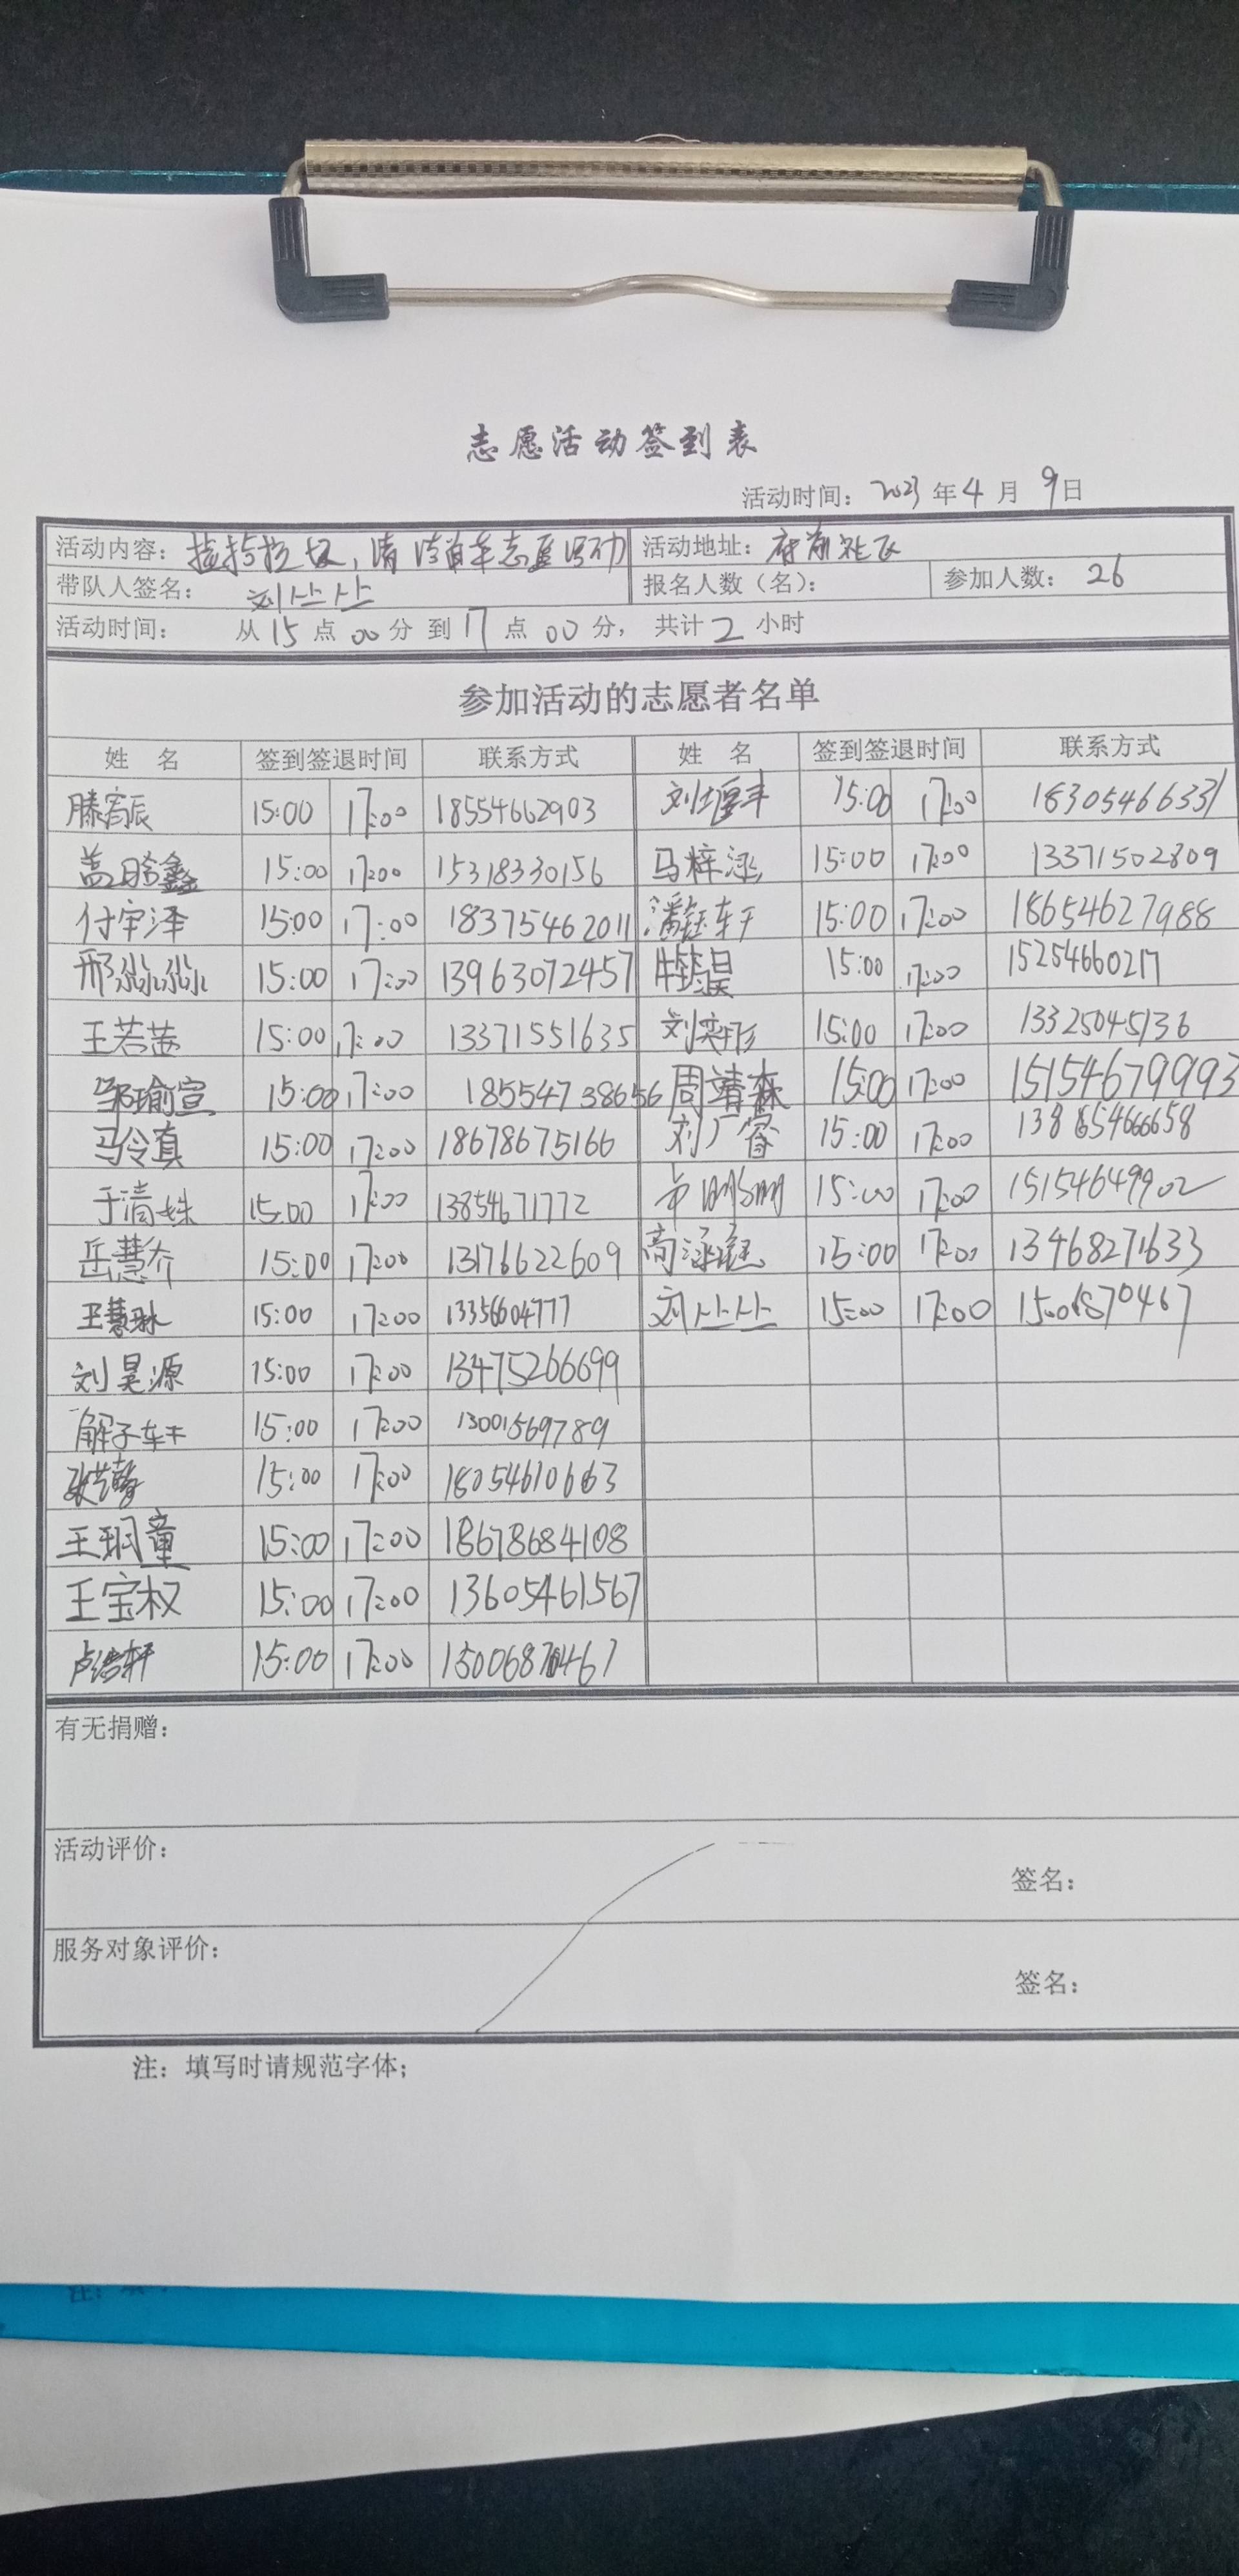 志愿活动签到表
活动时间：2023年4月9日
活动内容： 捡拾垃圾，清洁单车志愿活动 活动地址：府前社区
带队人签名： 刘 报名人数（名）： 参加人数： 26
活动时间： 从15点00分到17点00分， 共计2小时
参加活动的志愿者名单
姓 名 签到签退时间 联系方式 姓 名 签到签退时间 联系方式
15:00 17:00 18554662903 15:00 17:00 18305466331
15:00 17:00 15318330156 马梓涵 15:00 17:00 13371502809
付宇泽 15:00 17:00 18375462011 潘钰轩 15:00 17:00 18654627988
邢淼淼 15:00 17:00 13963072457 15:00 17:00 15254660217
王若茜 15:00 17:00 13371551635 刘奕彤 15:00 17:00 13325045136
邹瑜宣 15:00 17:00 18554738656 周靖森 15:00 17:00 15154679993
马令真 15:00 17:00 18678675166 刘广睿 15:00 17:00 138654666658
于清姝 15:00 17:00 13854671772 15:00 17:00 15154649902
岳慧乔 15:00 17:00 13176622609 高 15:00 17:00 13468271633
王慧琳 15:00 17:00 1335604777 刘 15:00 17:00 15006870467
刘昊源 15:00 17:00 13475266699
解子轩 15:00 17:00 13001569789
张 15:00 17:00 18054610663
王玥童 15:00 17:00 18678684108
王宝权 15:00 17:00 13605461567
卢浩轩 15:00 17:00 15006870467
有无捐赠：
活动评价：
签名：
服务对象评价：
签名：
注：填写时请规范字体；